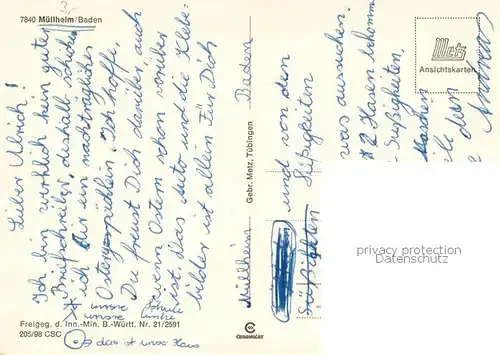 7840 Müllheim/Baden
Lieber Ulrich!
Ich bin wirklich kein guter
Briefschreiber, deshalb schicke
ich Dir ein nachträgliches
Ostergrüßlein. Ich hoffe,
Du freust Dich darüber auch
wenn Ostern schon vorüber
ist. Das Auto und die Klebe-
bilder ist allein Für Dich
und von den
Süßigkeiten
was aussuchen.
2 Hasen bekomm
Süßigkeiten.
le dein
Andreas
Müllheim Baden
unsere Schule
unsere Kirche
das ist unser Haus
Freigeg. d. Inn.-Min. B.-Württ. Nr. 21/2591
205/98 CSC
Gebr. Metz, Tübingen
Metz
Ansichtskarten
privacy protection
Datenschutz